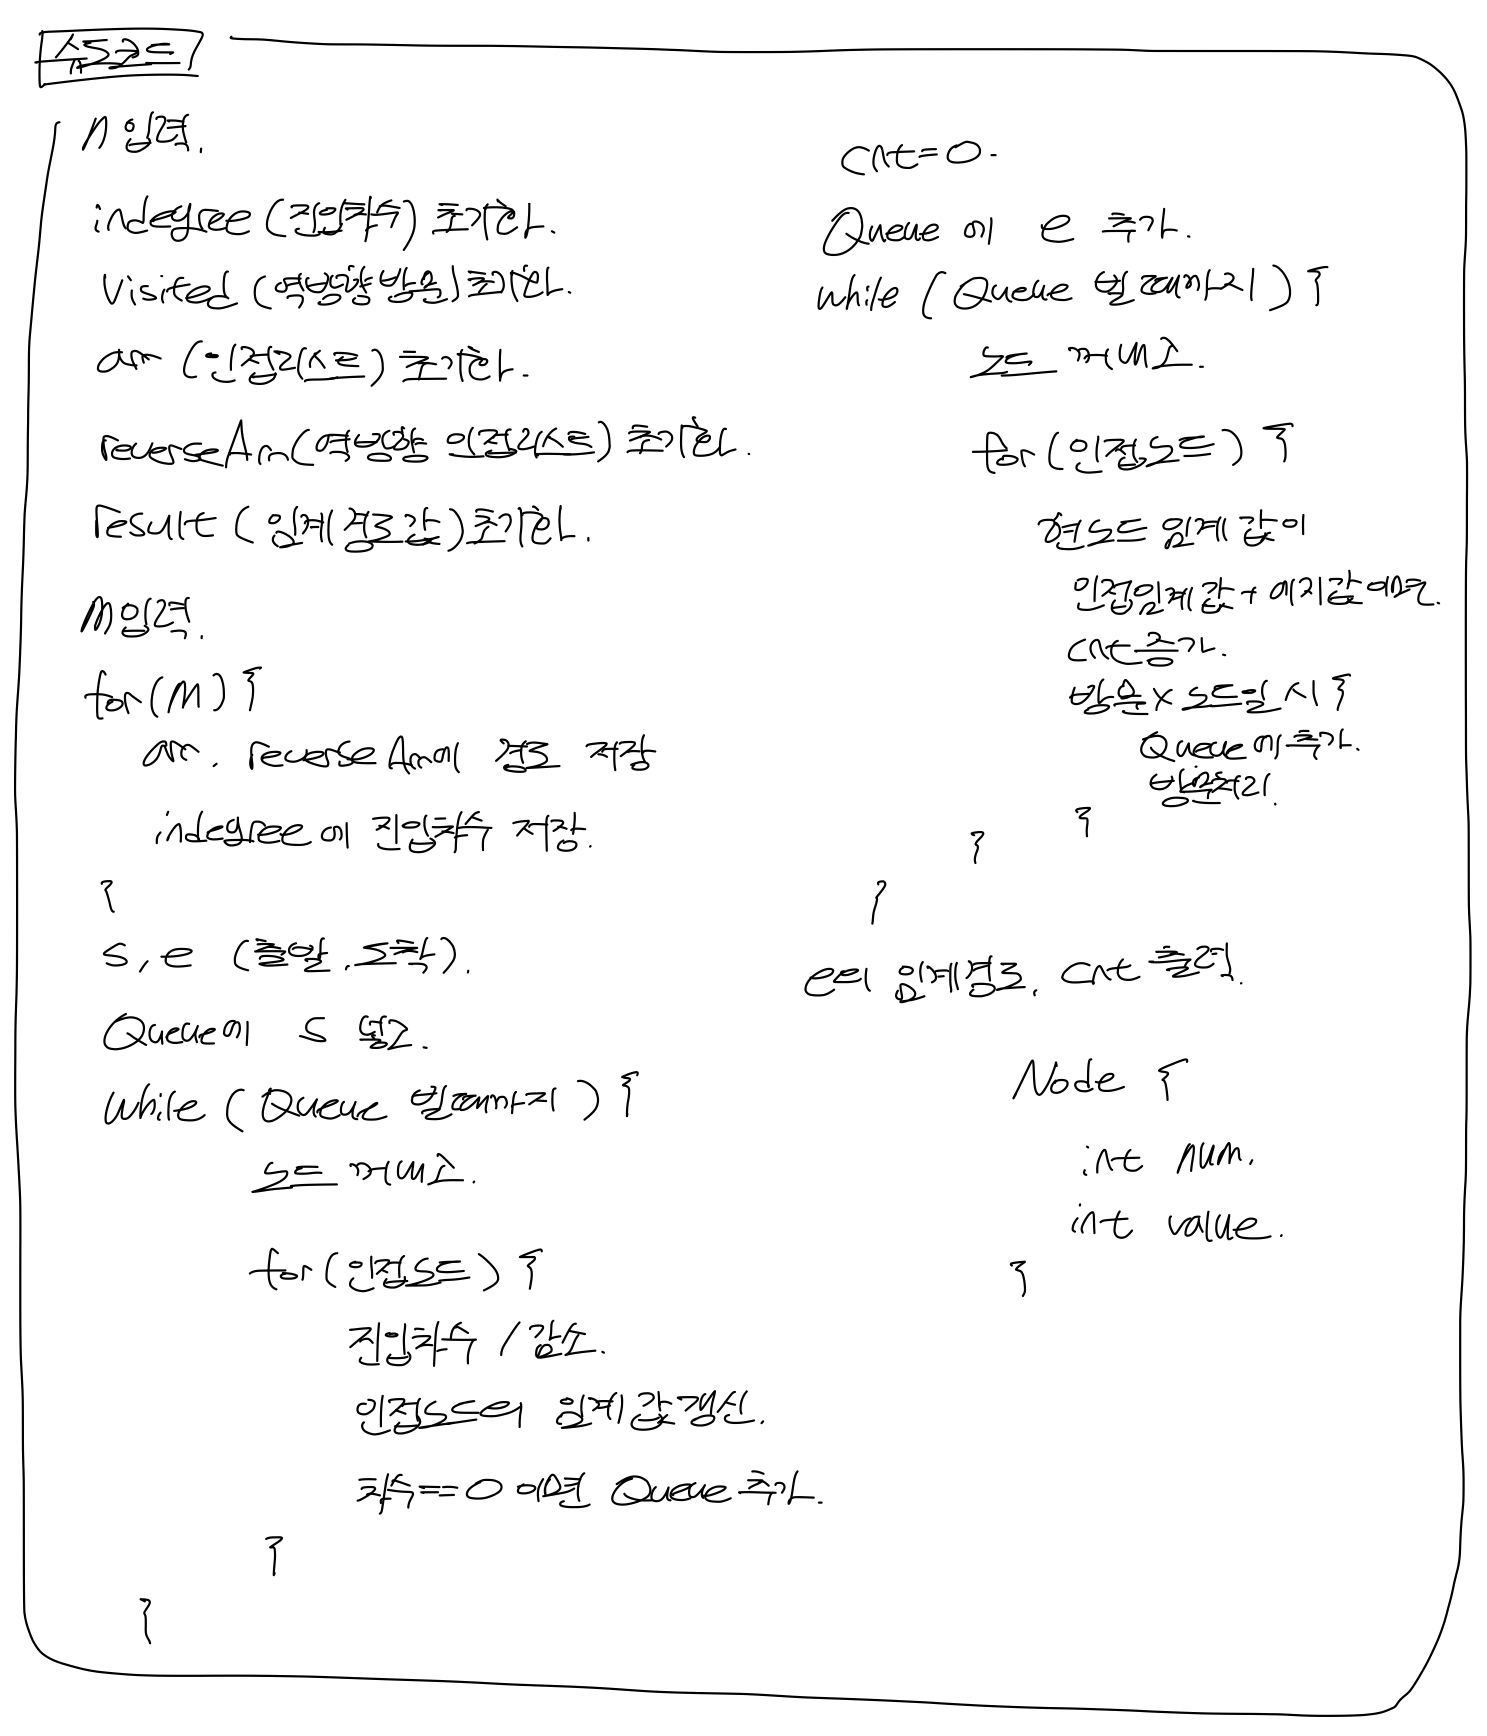 슈도코드
n 입력.
indegree (진입차수) 초기화.
visited (역방향 방문) 초기화.
arr (인접리스트) 초기화.
reverseArr(역방향 인접리스트) 초기화.
result (임계 경로 값) 초기화.
M입력.
for(M) {
arr, reverse Arr에 경로 저장
indegree에 진입차수 저장.
}
s, e (출발, 도착).
Queue에 s 넣고.
while (Queue 빌때까지) {
노드 꺼내고.
for(인접노드) {
진입차수 1 감소.
인접노드의 임계 값 갱신.
차수==0 이면 Queue 추가.
}
}
cnt=0.
Queue 에 e 추가.
while (Queue 빌 때까지) {
노드 꺼내고.
for(인접노드) {
현노드 임계 값이
인접임계값 + 에지값이면.
cnt증가.
방문x 노드일 시 {
Queue에추가.
방문처리.
}
}
}
e의 임계경로, cnt 출력.
Node {
int num.
int value.
}